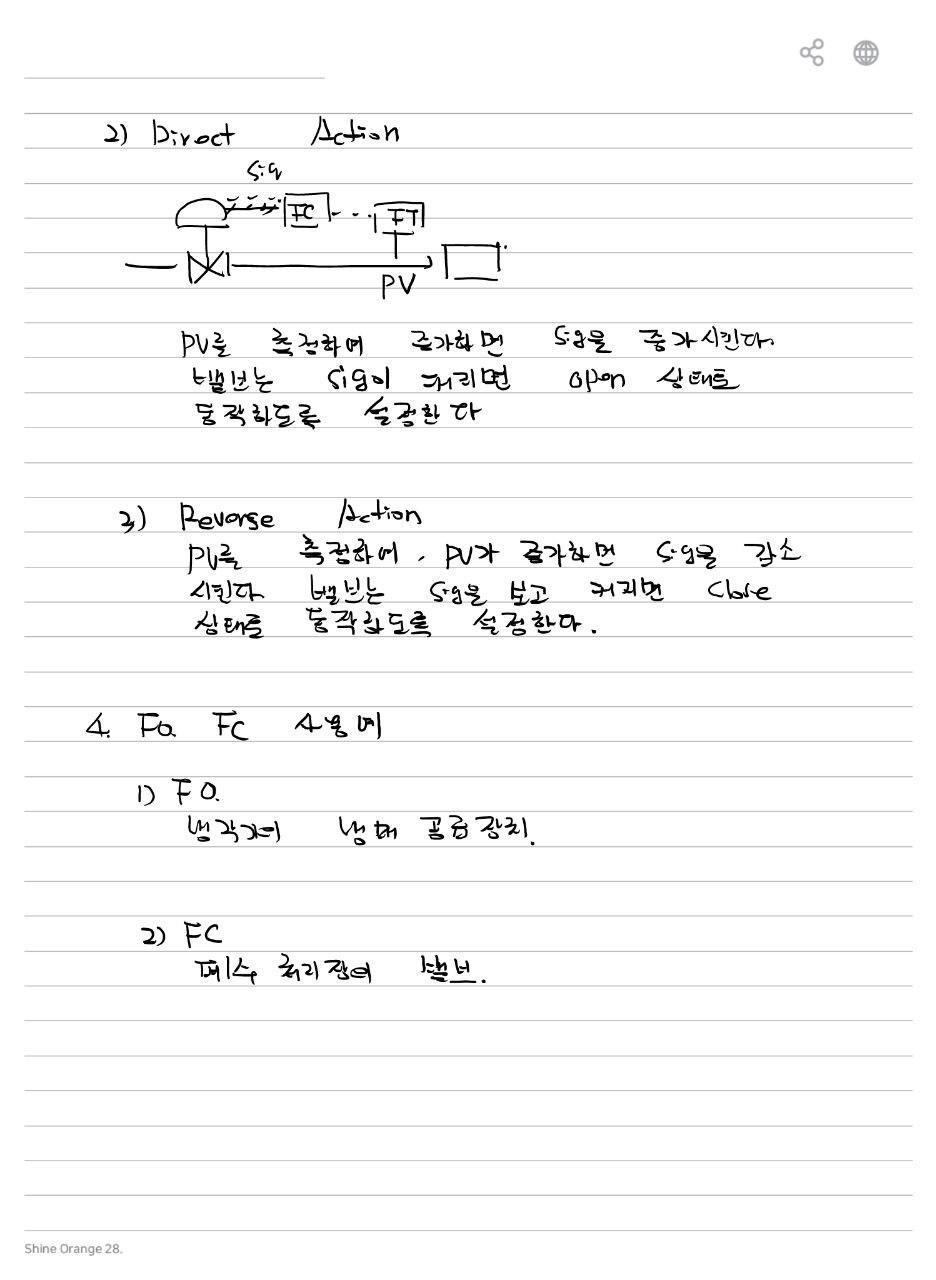 2) Direct Action
Sig
FC
FT
PV
PV를 측정하여 증가하면 Sig을 증가시킨다.
밸브는 Sig이 커지면 open 상태로
동작하도록 설정한다
3) Reverse Action
PV를 측정하여, PV가 증가하면 Sig을 감소
시킨다 밸브는 Sig을 보고 커지면 Close
상태로 동작하도록 설정한다.
4. FO. FC 사용예
1) FO.
냉각기의 냉매 공급장치.
2) FC
폐수 처리장의 밸브.
Shine Orange 28.